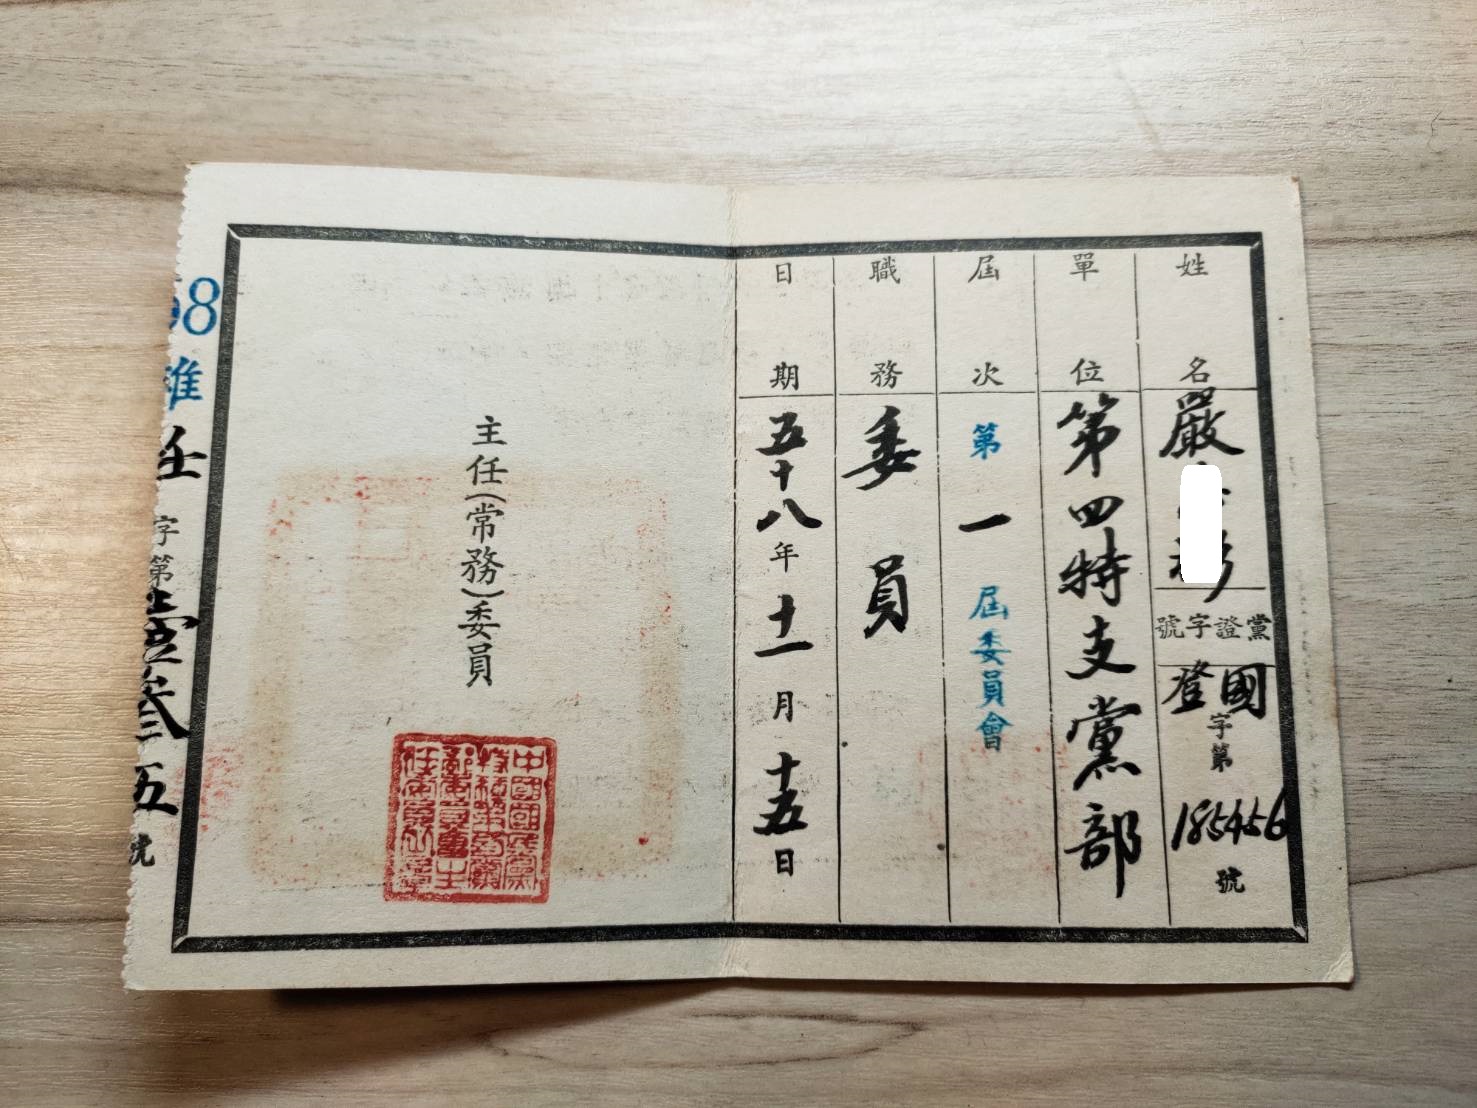 姓名 嚴
黨證字號
國登字第185456號
單位 第四特支黨部
屆次 第一屆委員會
職務 委員
日期 五十八年十一月十五日
主任(常務)委員
58雄任字第壹叁五號